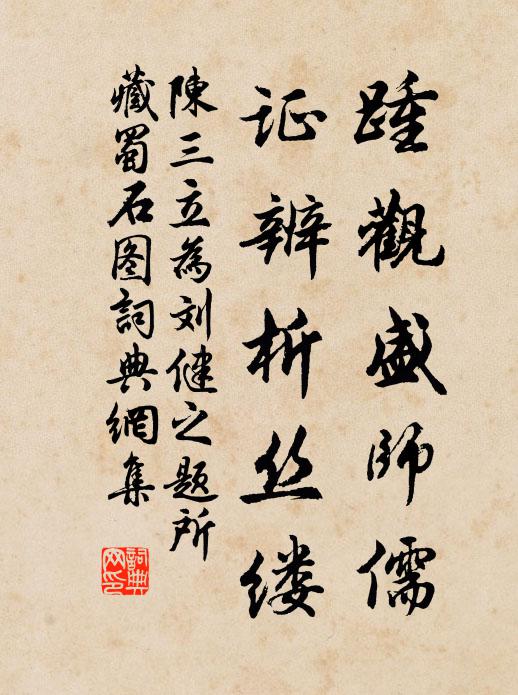 踵觀盛師儒
证辨析丝缕
陳三立為刘健之题所
藏蜀石图詞典網集
詞典网印